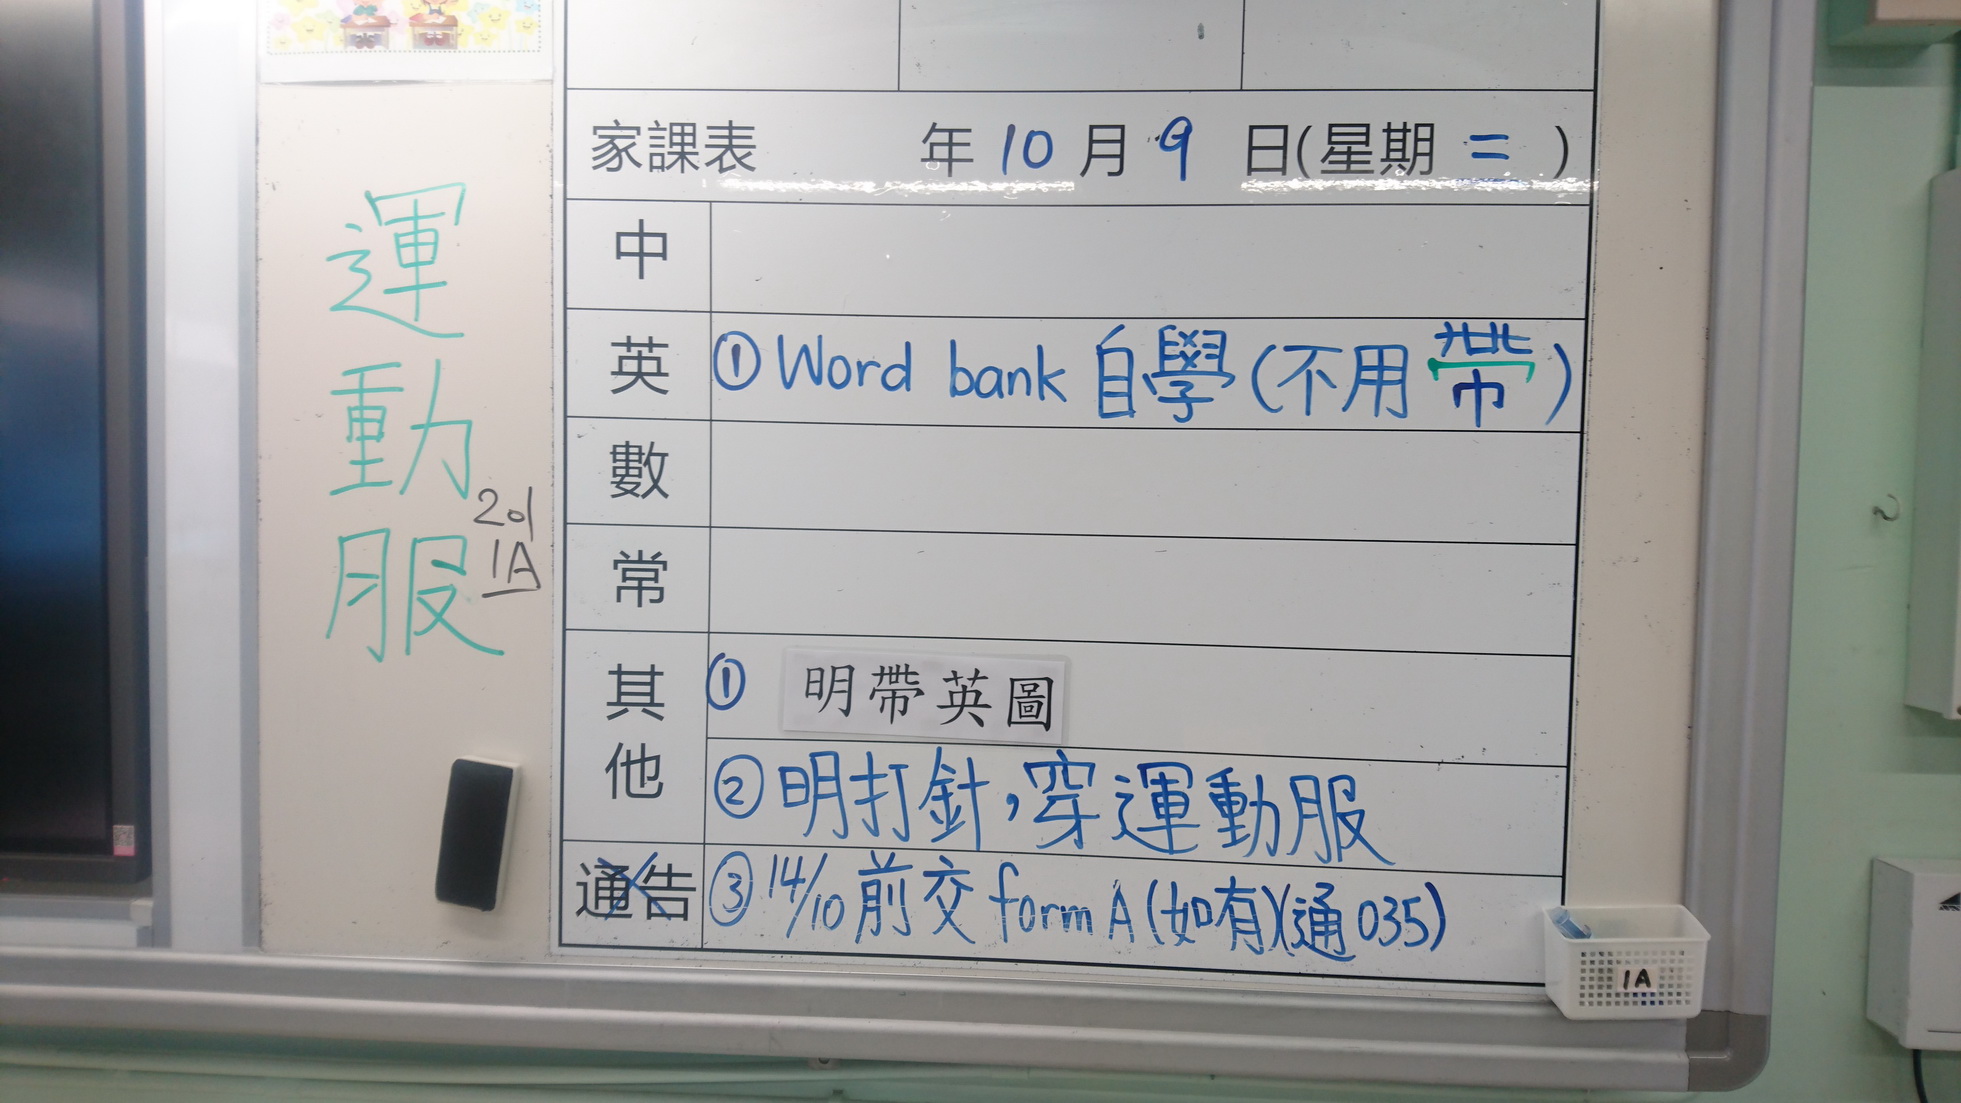 家課表 年 10 月 9 日(星期 二 )
中
英 ①Word bank 自學(不用帶)
數
常
其他 ① 明帶英圖
②明打針,穿運動服
通告 ③14/10前交 form A(如有)(通035)
運動服
201
1A
1A